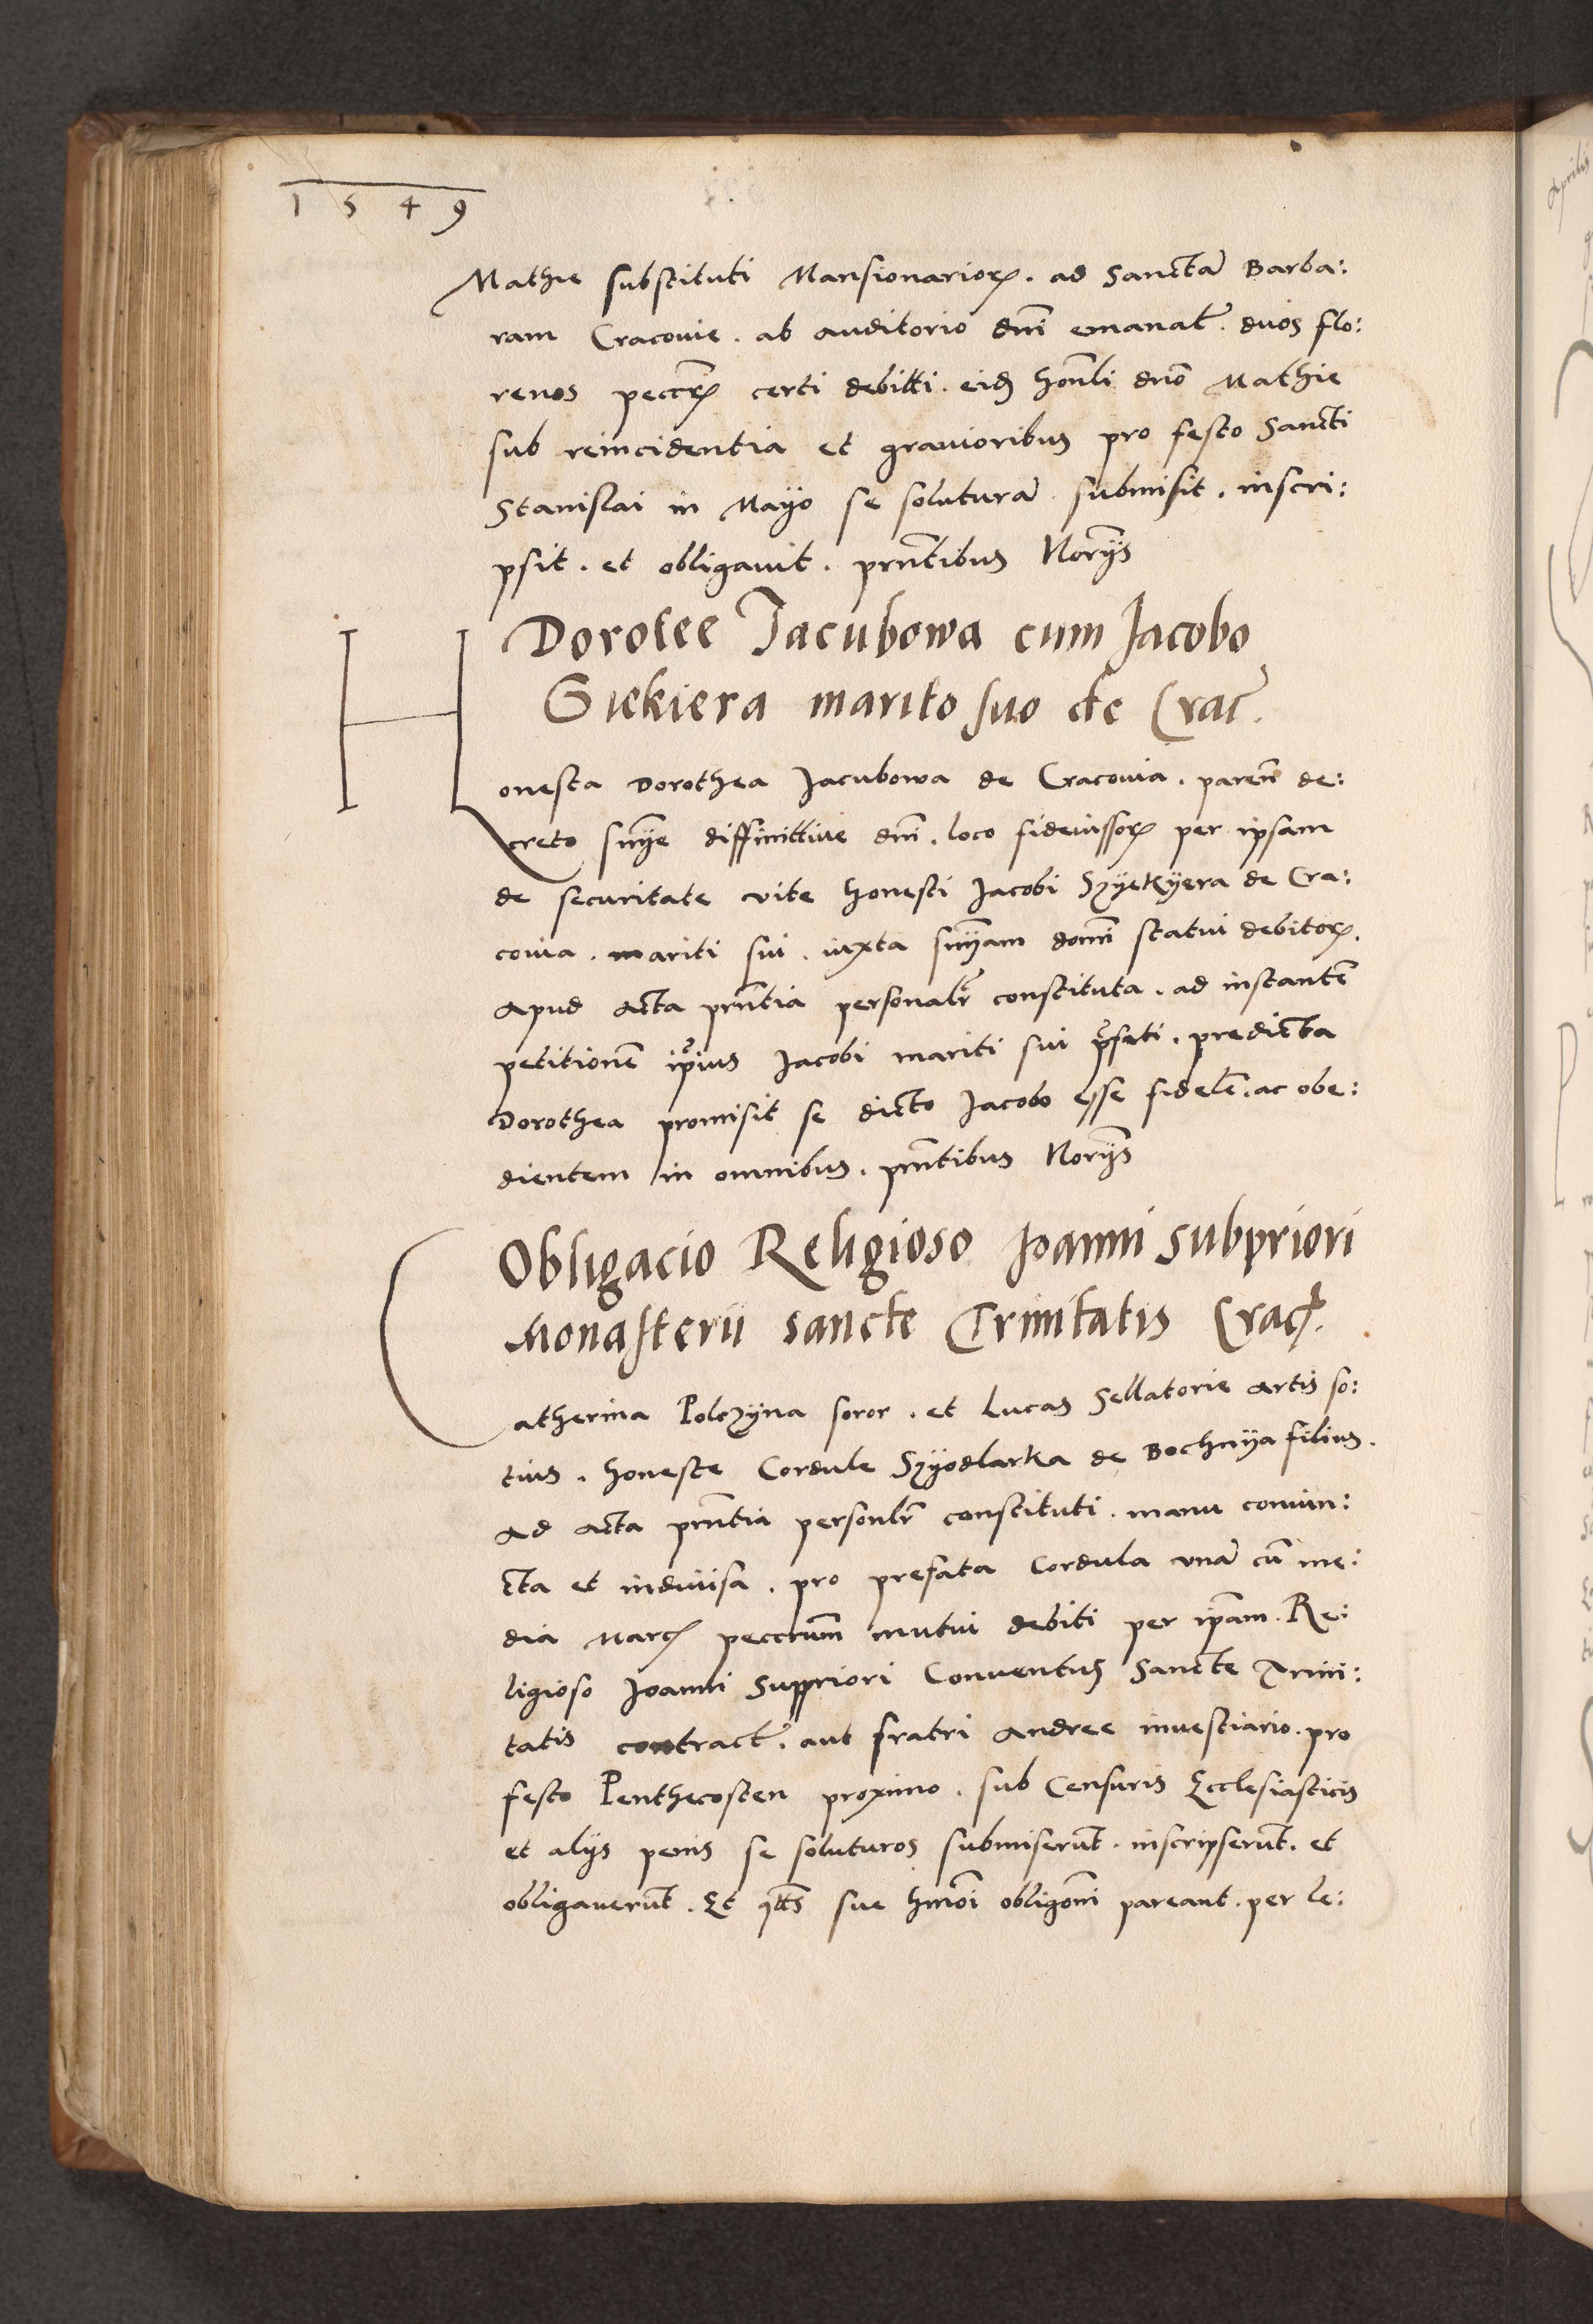 1549
Mathie substituti Mansionarioꝝ. ad Sanctā Barba:
ram Cracouie. ab auditorio dn̄i emanat̄. duos flo:
renos pecc̄ꝝ certi debitti. eidꝫ hon̄li dn̄o Mathie
sub reincidentia et grauioribus pro festo Sancti
Stanislai in Mayo se soluturā submisit. inscri:
psit. et obligauit. pn̄tibus Nor̄ijs
Dorotee Jacubowa cum Jacobo
Siekiera marito suo de Crac̄.
Honesta Dorothea Jacubowa de Cracouia. paren̄ de:
creto sn̄ye diffinittiue dn̄i. loco fideiussoꝝ per ipsam
de securitate vite honesti Jacobi Syyekyera de Cra:
couia. mariti sui. iuxta sn̄yam domī statui debitoꝝ.
Apud Acta pn̄tia personalr̄ constituta. ad instantē
petitionē ip̄ius Jacobi mariti sui p̄fati. predicta
Dorothea promisit se dicto Jacobo esse fidelē. ac obe:
dientem in omnibus. pn̄tibus Nor̄ijs
Obligacio Religioso Joanni Subpriori
Monasterii sancte Trinitatis Crac̄.
Catherina Polczyna soror. et Lucas Sellatorie Artis so:
tius. honeste Cordule Szyodlarka de Bochnya filius.
Ad Acta pn̄tia personlr̄ constituti. manu coniun:
cta et indiuisa. pro prefata Cordula vnā cū me:
dia Marcꝭ peccrum̄ mutui debiti per ip̄am. Re:
ligioso Joanni Suppriori Conuentus Sancte Trini:
tatis contract̄. aut fratri Andree inuestiario. pro
festo Penthecosten proximo. sub Censuris Ecclesiasticis
et alijs penis se soluturos submiserūt. inscripserūt. et
obligauerūt. Et qt̄s sue hmōi obligōni pareant. per le: